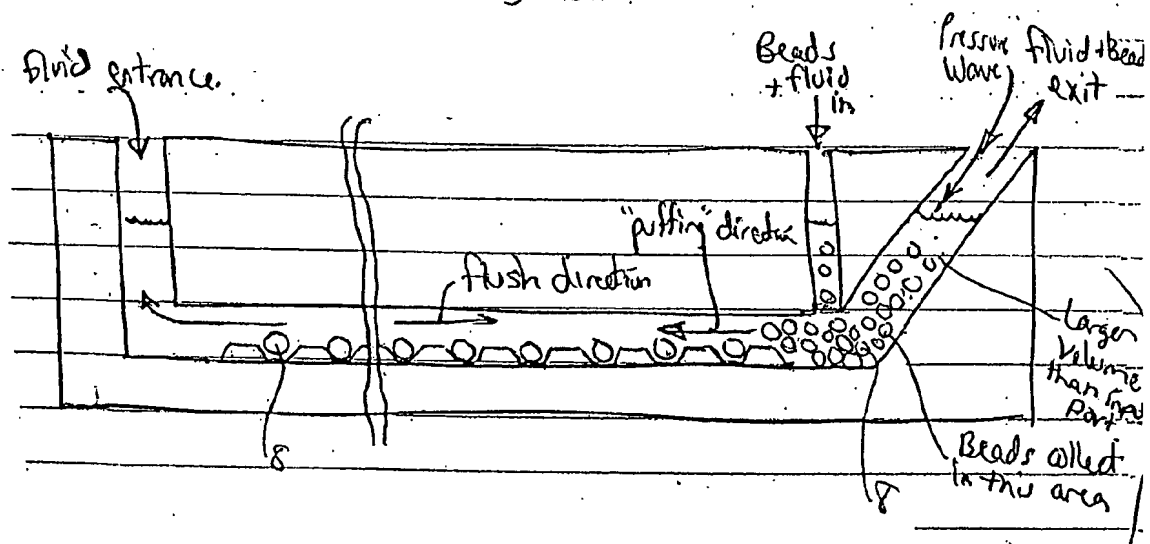 fluid entrance.
Beads
+ fluid
in
Pressure
Wave
fluid + Bead
exit
"puffing" direction
flush direction
Larger
Volume
than
Port
Beads collect
in this area
8
8